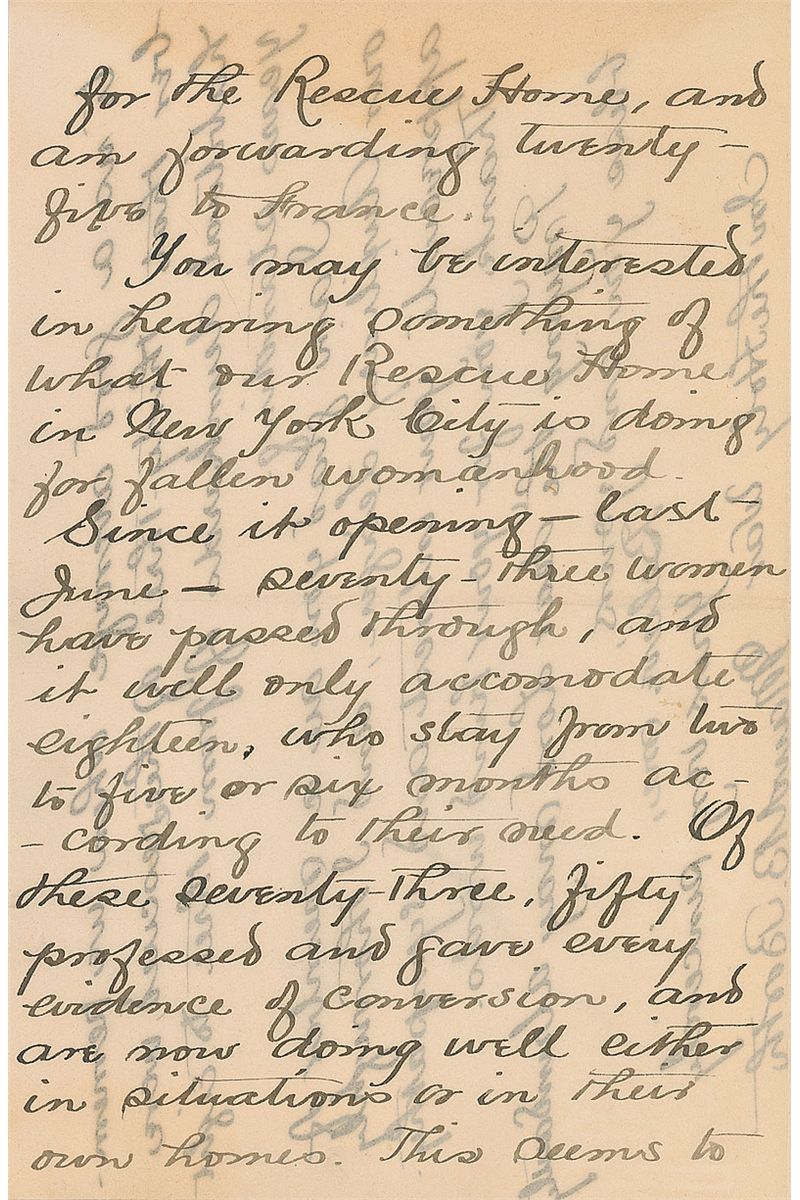 for the Rescue Home, and
am forwarding twenty-
five to France.
You may be interested
in hearing something of
what our Rescue Home
in New York City is doing
for fallen womanhood.
Since it opening - last
June - seventy-three women
have passed through, and
it will only accomodate
eighteen, who stay from two
to five or six months ac-
-cording to their need. Of
these seventy-three, fifty
professed and gave every
evidence of conversion, and
are now doing well either
in situations or in their
own homes. This seems to